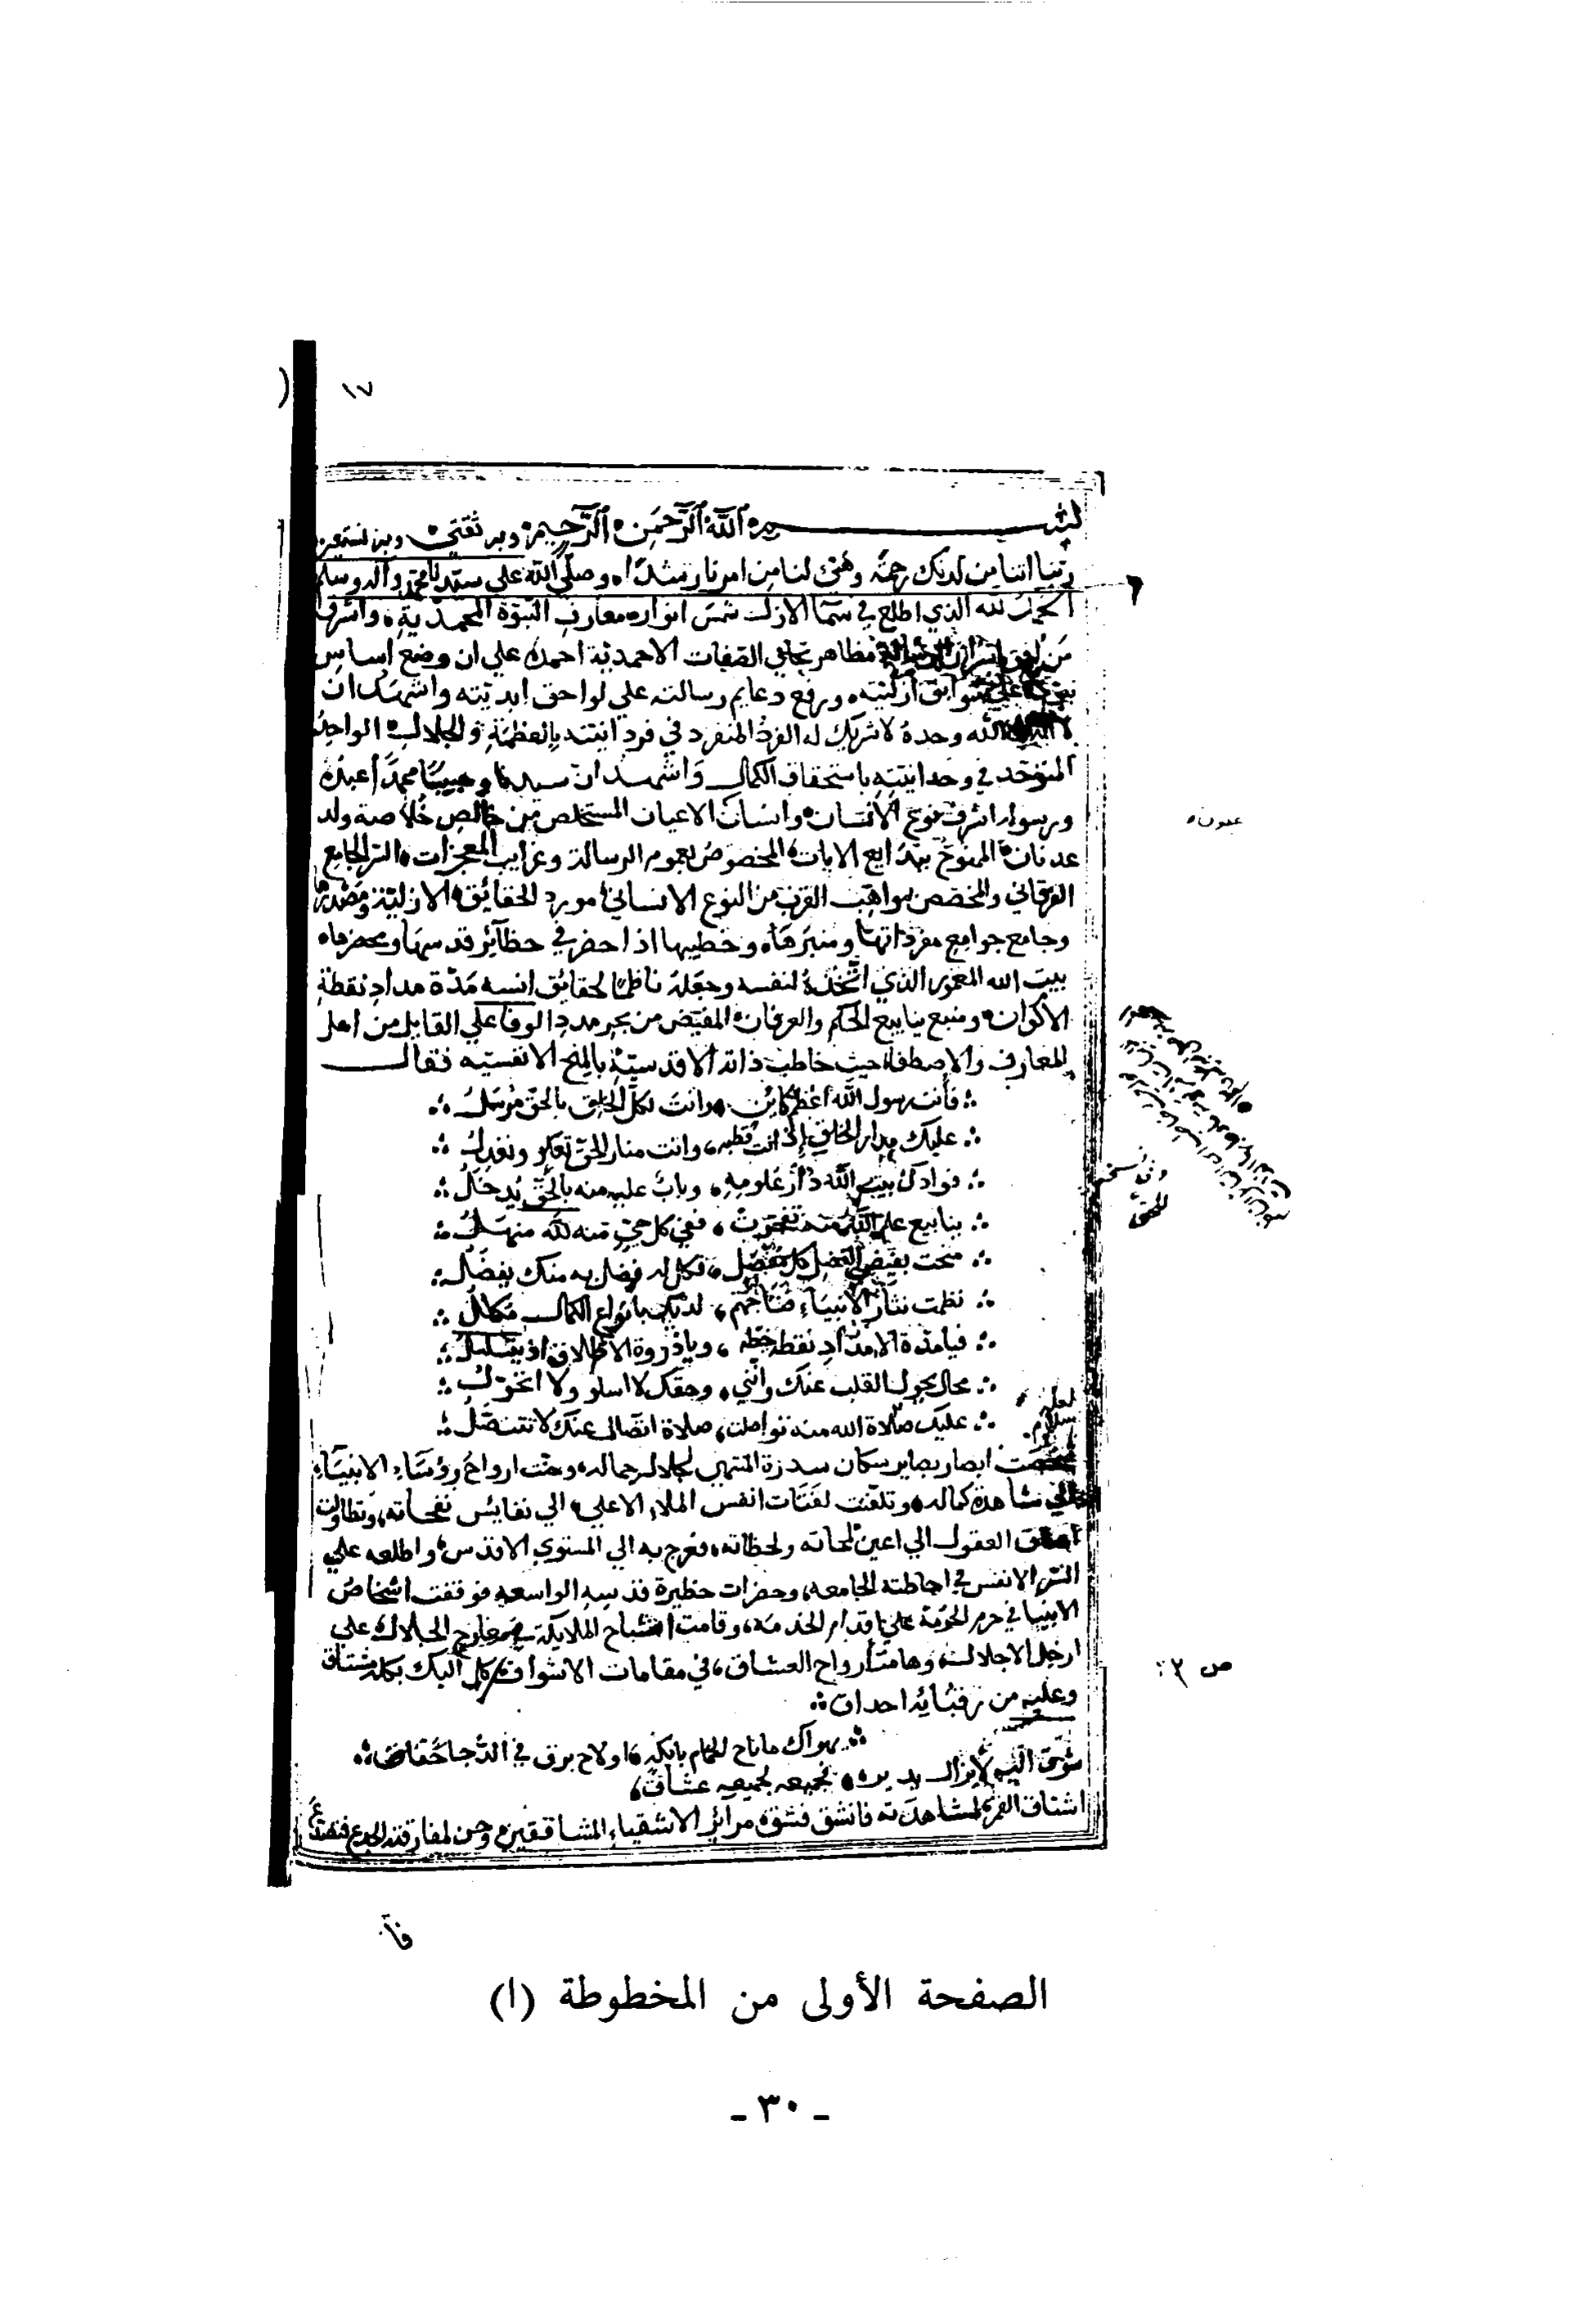 ١٧
بسم الله الرحمن الرحيم وبه ثقتي وبه نستعين
ربنا اتنا من لدنك رحمة وهيئ لنا من امرنا رشدا وصلى الله على سيدنا محمد واله وسلم
الحمد لله الذي اطلع في سمآ الازل شمس انوار معارف النبوة المحمدية واشرق
من افق مظاهر تجلي الصفات الاحمدية احمده علي ان وضع أساس
سوابق ازليته ورفع دعايم رسالته علي لواحق ابديته واشهد ان
لا الله وحده لا شريك له الفرد المنفرد في فردانيته بالعظمة والجلال الواحد
المتوحد في وحدانيته باستحقاق الكمال واشهد ان سيدنا وحبيبنا محمدا عبده
ورسوله اشرف نوع الانسان وانسان الاعيان المستخلص من خالص خلاصة ولد
عدنان الممنوح ببدايع الايات المخصوص بعموم الرسالة وغرايب المعجزات السر الجامع
الفرقاني والمخصص بمواهب القرب من النوع الانساني مورد الحقائق الازلية ومصدرها
وجامع جوامع مفرداتها ومنبرها وخطيبها اذا حضر في حظآئر قدسها ومحضرها
بيت الله المعمور الذي اتخذه لنفسه وجعله ناظما لحقائق انسه مدة مداد نقطة
الأكوان ومنبع ينابيع الحكم والعرفان المفيض من بحر مدد الوفا علي القابل من اهل
المعارف والاصطفا حيث خاطب ذاته الاقدسية بالمنح الانفسيه فقال
فأنت رسول الله اعظم كائن وانت لكل الخلق بالحق مرسل
عليك مدار الخلق إذ انت قطبه وانت منار الحق تعلو وتعدل
فوادك بيت الله دار علومه وباب عليه منه بالحق يدخل
ينابيع علم الله منه تفجرت ففي كل حي منه لله منهل
منحت بفيض الفضل كل مفضل فكل له فضل به منك يفضل
نظمت نثار الانبياء فتاجهم لديك بأنواع الكمال مكلل
فيا مدة الامداد نقطة خطه ويا ذروة الاطلاق اذ يتسلسل
محال يحول القلب عنك وانني وحقك لا اسلو ولا اتحول
عليك صلاة الله منه تواصلت صلاة اتصال عنك لا تتنصل
شخصت ابصار بصاير سكان سدرة المنتهي لجلال جماله وحنت ارواح رؤساء الانبياء
الي مشاهدة كماله وتلفتت لفتات انفس الملاء الاعلي الي نفايس نفحاته وتطاولت
اعناق العقول الي اعين لمحاته ولحظاته فعرج به الي المستوي الاقدس واطلعه علي
السر الانفس في احاطته الجامعه وحضرات حظيرة قدسه الواسعه فوقفت اشخاص
الانبيا في حرم الحرمة علي اقدام الخدمه وقامت اشباح الملايكة في معارج الجلال علي
ارجل الاجلال وهامت أرواح العشاق في مقامات الاشواق كل اليك بكله مشتاق
وعليه من رقبائه احداق
يهواك ما ناح الحمام بايكه او لاح برق في الدجا خفاق
شوق اليه لا يزال يديره فجميعه لجميعه عشاق
اشتاق القمر لمشاهدته فانشق فشق مرائر الاشقياء المشاققين وحن لمفارقته الجذع فتصدع
فآ
عيون
لعله
سلام
ص ٢
الصفحة الأولى من المخطوطة (ا)
- ٣٠ -